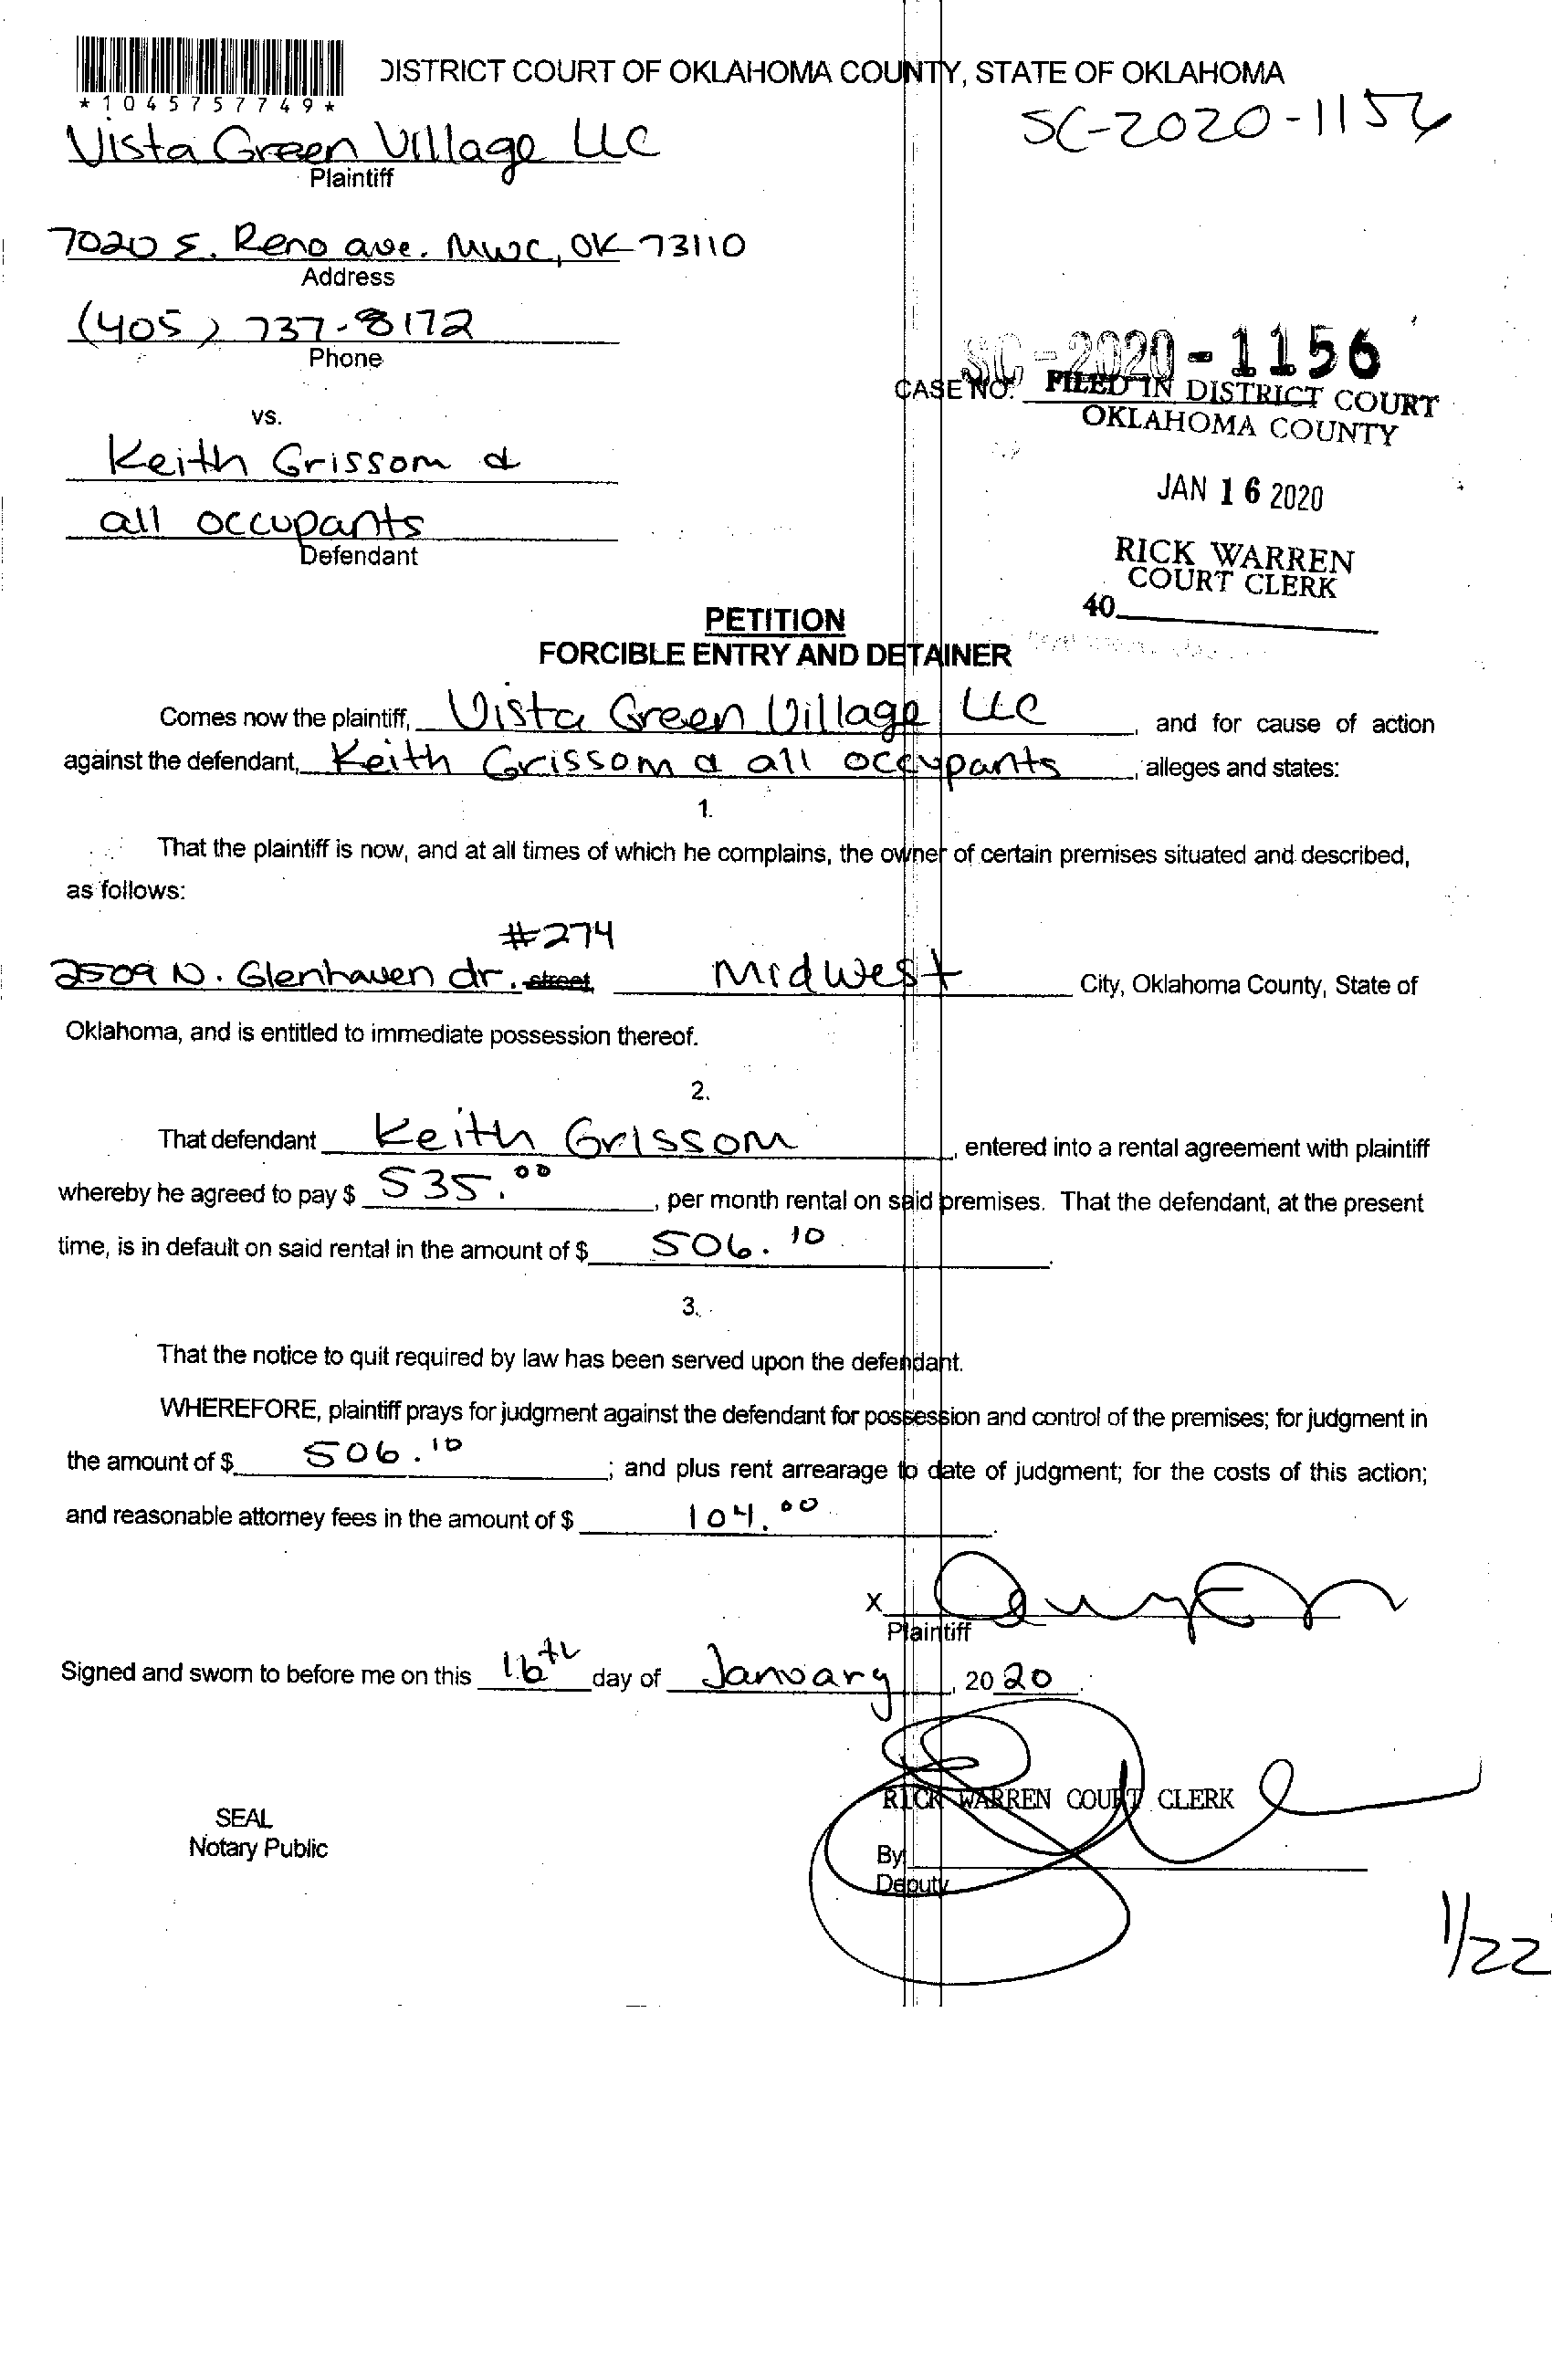 *1045757749*
DISTRICT COURT OF OKLAHOMA COUNTY, STATE OF OKLAHOMA
SC-2020-1156
Vista Green Village LLC
Plaintiff
7020 S. Reno ave. MWC, OK 73110
Address
(405) 737-8172
Phone
SC-2020-1156
CASE NO.
FILED IN DISTRICT COURT
OKLAHOMA COUNTY
vs.
Keith Grissom &
JAN 16 2020
all occupants
Defendant
RICK WARREN
COURT CLERK
40
PETITION
FORCIBLE ENTRY AND DETAINER
Comes now the plaintiff, Vista Green Village LLC, and for cause of action
against the defendant, Keith Grissom & all occupants, alleges and states:
1.
That the plaintiff is now, and at all times of which he complains, the owner of certain premises situated and described,
as follows:
#274
2509 N. Glenhaven dr. street Midwest City, Oklahoma County, State of
Oklahoma, and is entitled to immediate possession thereof.
2.
That defendant Keith Grissom, entered into a rental agreement with plaintiff
whereby he agreed to pay $ 535.00, per month rental on said premises. That the defendant, at the present
time, is in default on said rental in the amount of $ 506.10.
3.
That the notice to quit required by law has been served upon the defendant.
WHEREFORE, plaintiff prays for judgment against the defendant for possession and control of the premises; for judgment in
the amount of $ 506.10; and plus rent arrearage to date of judgment; for the costs of this action;
and reasonable attorney fees in the amount of $ 104.00.
X
Plaintiff
Signed and sworn to before me on this 16th day of January, 2020.
RICK WARREN COURT CLERK
SEAL
Notary Public
By
Deputy
1/22